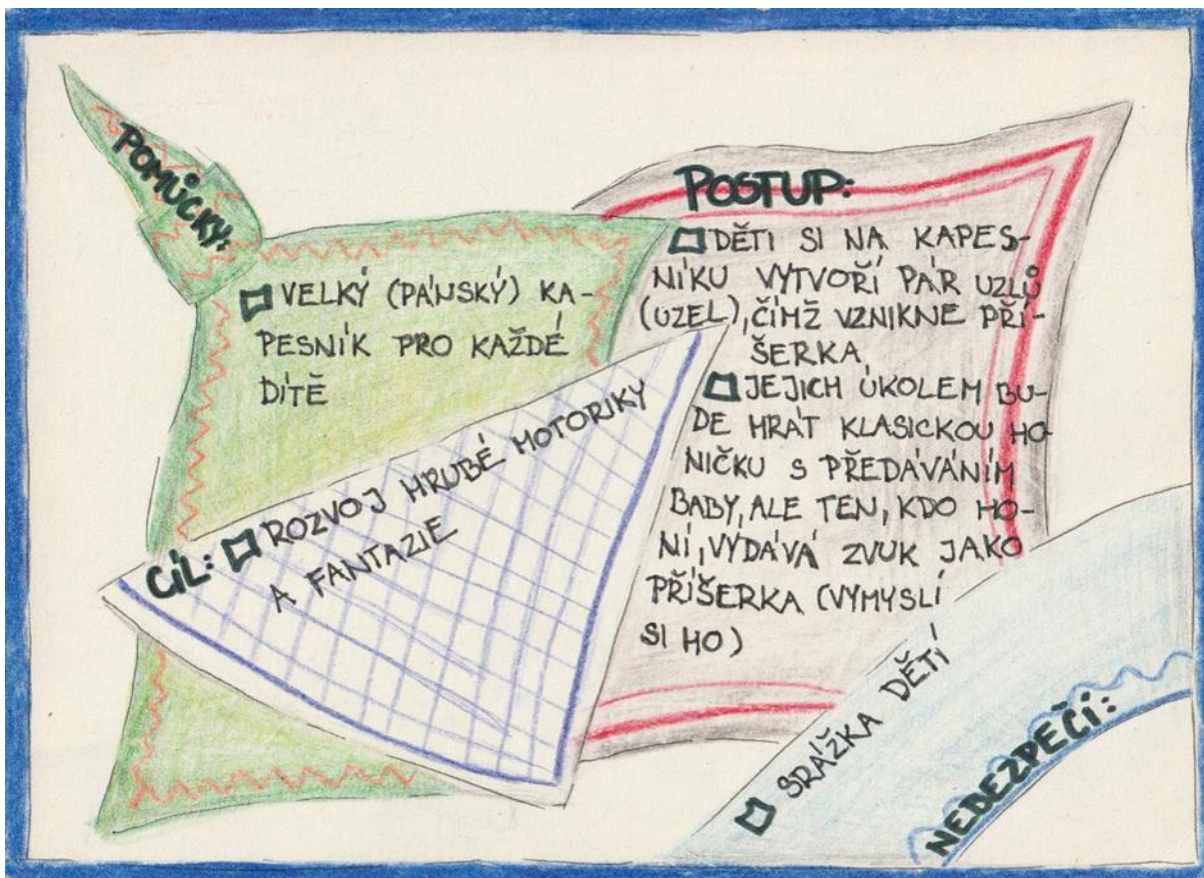 POMŮCKY:
VELKÝ (PÁNSKÝ) KA-
PESNÍK PRO KAŽDÉ
DÍTĚ
CÍL: ROZVOJ HRUBÉ MOTORIKY
A FANTAZIE
POSTUP:
DĚTI SI NA KAPES-
NÍKU VYTVOŘÍ PÁR UZLŮ
(UZEL), ČÍMŽ VZNIKNE PŘÍ-
ŠERKA
JEJICH ÚKOLEM BU-
DE HRÁT KLASICKOU HO-
NIČKU S PŘEDÁVÁNÍM
BABY, ALE TEN, KDO HO-
NÍ, VYDÁVÁ ZVUK JAKO
PŘÍŠERKA (VYMYSLÍ
SI HO)
NEBEZPEČÍ:
SRÁŽKA DĚTÍ